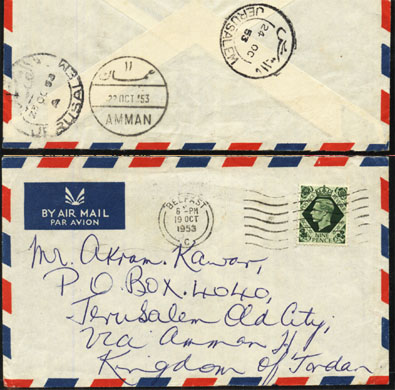 JERUSALEM
24 OC
53
JERUSALEM
OC 53
22 OCT '53
AMMAN
BY AIR MAIL
PAR AVION
BELFAST
6 - PM
19 OCT
1953
C
NINE
PENCE
Mr. Akram. Kawar,
P.O. BOX. 4040,
Jerusalem Old City,
Via Amman
Kingdom of Jordan